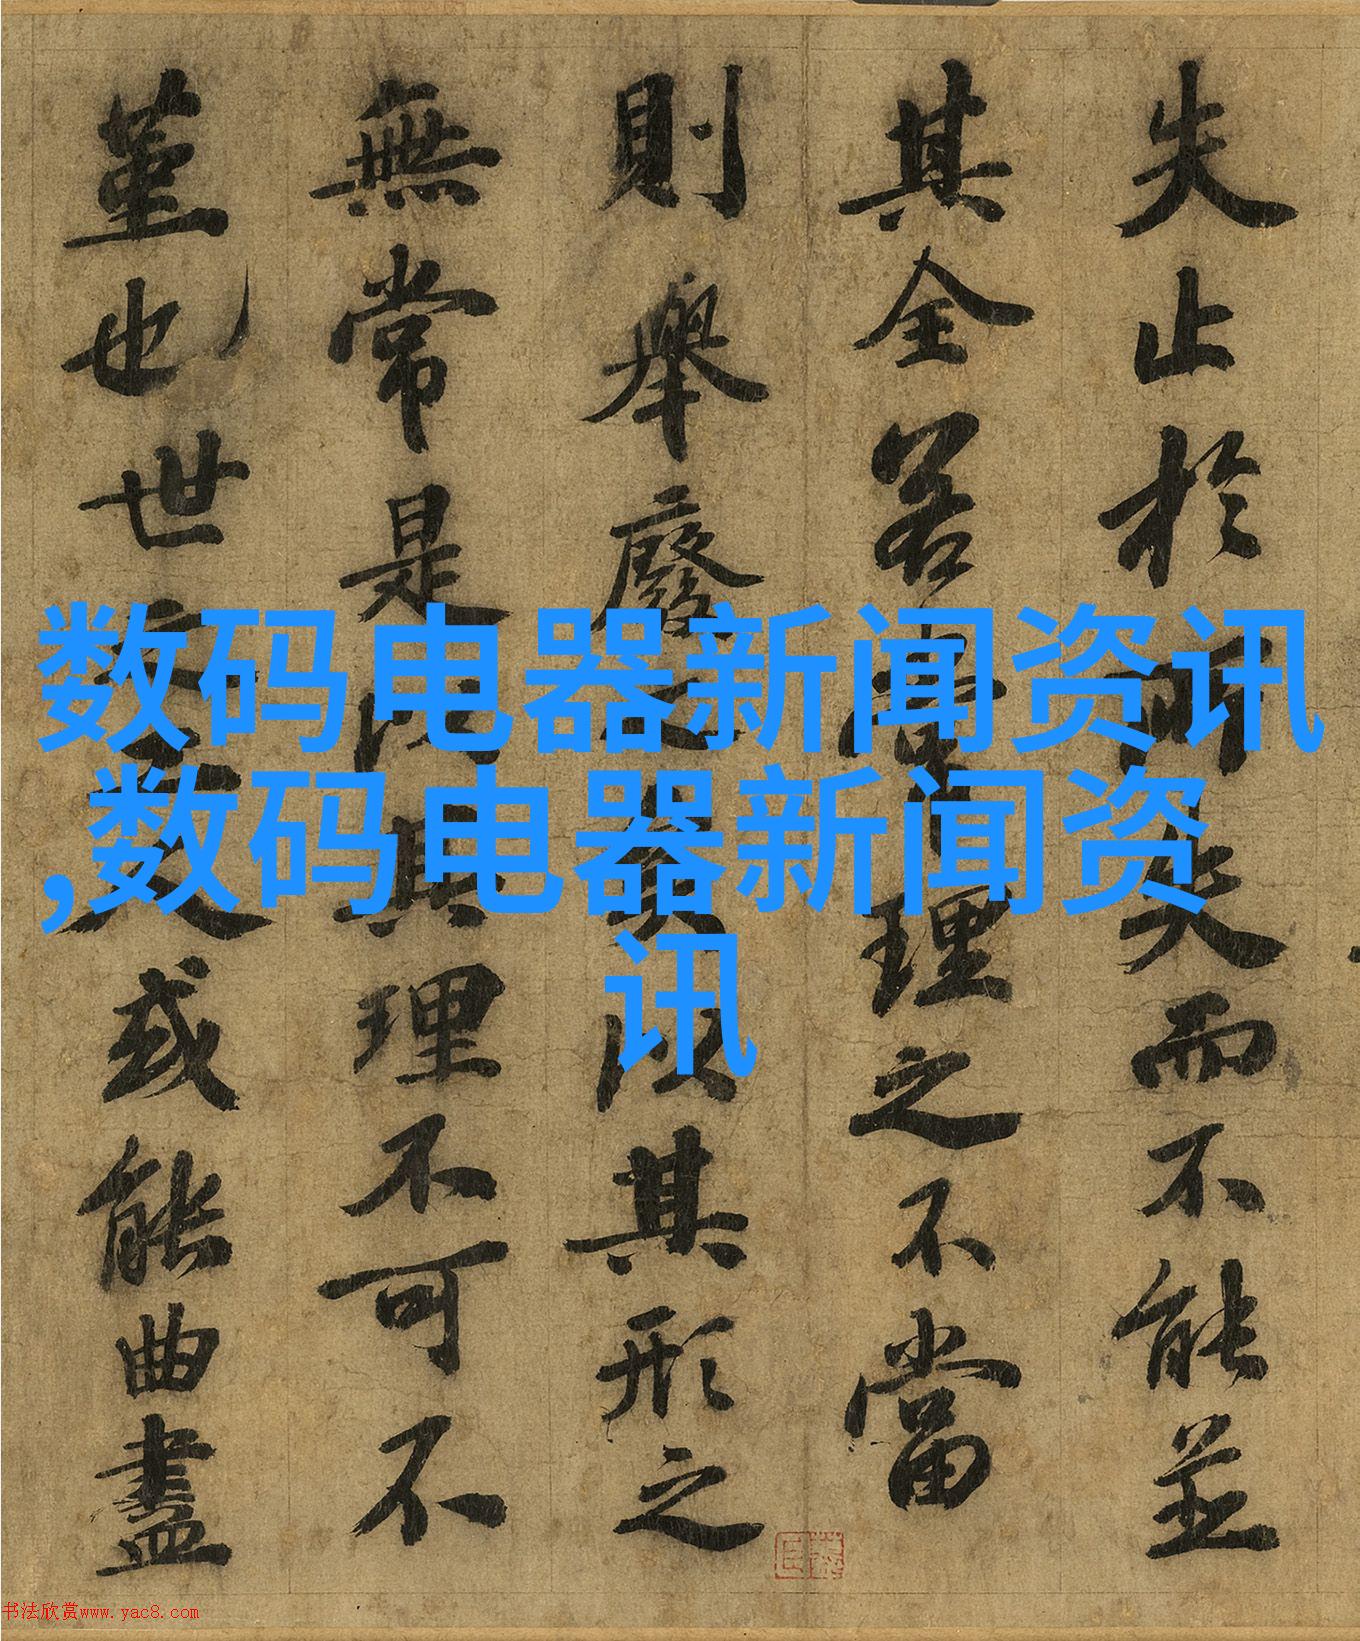 失止於所失而不能並
其全若常理之不當
則舉廢之矣以其形之
無常是以其理不可不
堇也世之工人或能曲盡
数码电器新闻资讯
,数码电器新闻资
讯
书法欣赏www.yac8.com